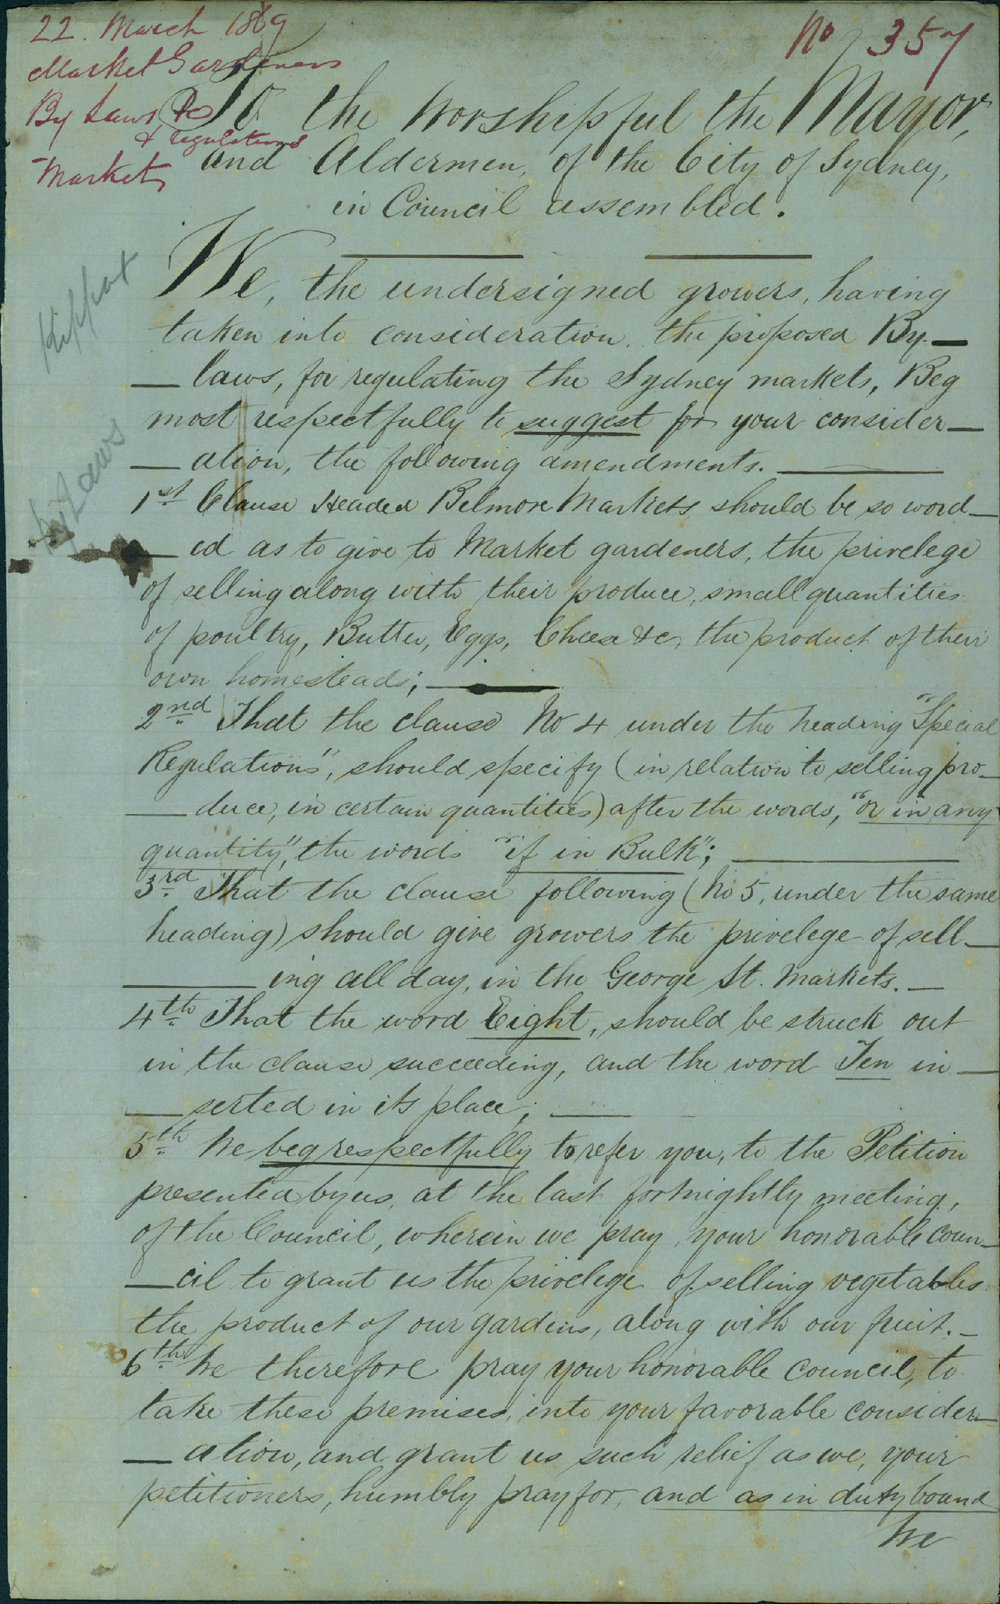 22. March 1869
Market Gardeners
By Laws &c
& regulations
Markets
No 357
To the Worshipful the Mayor,
and Aldermen, of the City of Sydney,
in Council assembled.
Kippax
By Laws
We, the undersigned growers, having
taken into consideration, the proposed By-
— laws, for regulating the Sydney markets, Beg
most respectfully to suggest for your consider—
— ation, the following amendments. —
1st Clause Headed Belmore Markets, should be so word—
— ed as to give to Market gardeners, the privelege
of selling along with their produce, small quantities
of poultry, Butter, Eggs, Cheese &c, the product of their
own homesteads; —
2nd That the clause No 4 under the heading "Special
Regulations", should specify (in relation to selling pro—
— duce, in certain quantities) after the words, "or in any
quantity", the words "if in Bulk"; —
3rd That the clause following (No 5, under the same
heading) should give growers the privelege of sell—
— ing all day, in the George St. Markets. —
4th That the word Eight, should be struck out
in the clause succeeding, and the word Ten in —
— serted in its place; —
5th We beg respectfully to refer you, to the Petition
presented by us, at the last fortnightly meeting,
of the Council, wherein we pray your honorable coun—
— cil to grant us the privelege of selling vegetables
the product of our gardens, along with our fruit. —
6th We therefore pray your honorable council, to
take these premises, into your favorable consider—
— ation, and grant us such relief as we, your
petitioners, humbly pray for, and as in duty bound
We